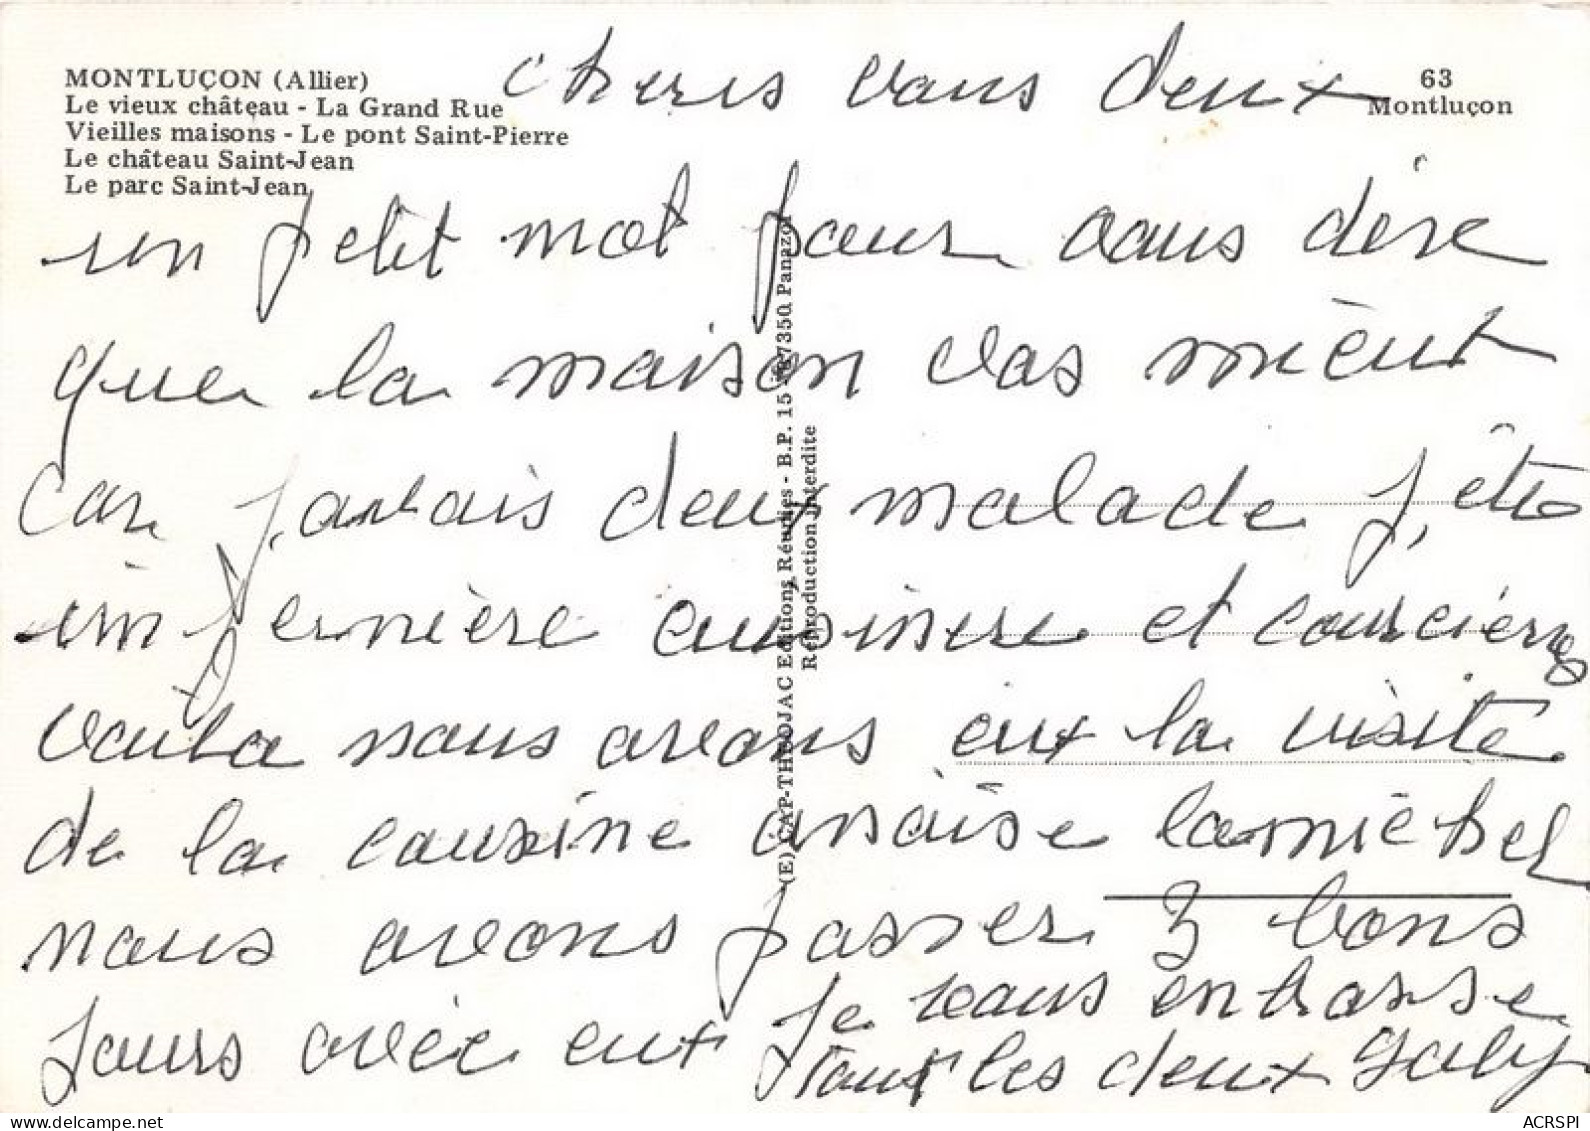 MONTLUÇON (Allier)
Le vieux château - La Grand Rue
Vieilles maisons - Le pont Saint-Pierre
Le château Saint-Jean
Le parc Saint-Jean
63
Montluçon
chers vous deux
un petit mot pour vous dire
que la maison vas mieux
car j,avais deux malade j,étes
infermière cuisinere et coursière
voila nous avons eux la visite
de la cousine anaise lamichel
nous avons passer 3 bons
jours avec eux je vous embrasse
Tous les deux Gaby
(E) CAP-THEOJAC Editions Réunies - B.P. 15 - 87350 Panazol
Reproduction Interdite
ACRSPI